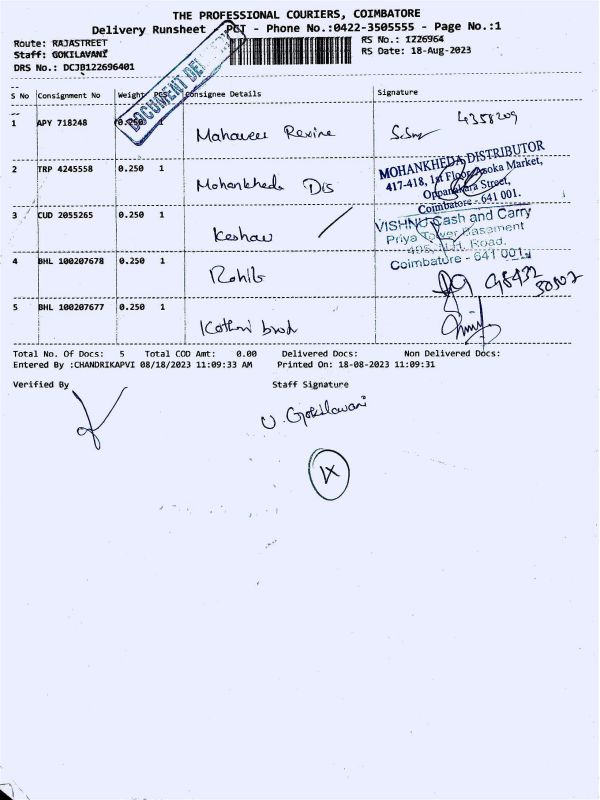 THE PROFESSIONAL COURIERS, COIMBATORE
Delivery Runsheet - PCT - Phone No.:0422-3505555 - Page No.:1
Route: RAJASTREET
RS No.: 1226964
Staff: GOKILAVANI
RS Date: 18-Aug-2023
DRS No.: DCJB122696401
DOCUMENT DELIVERY
S No Consignment No Weight PCS Consignee Details Signature
1 APY 718248 0.250 1 Mahaveer 4358209
2 TRP 4245558 0.250 1 Mohankheda Dis
MOHANKHEDA DISTRIBUTOR
417-418, 1st Floor, Asoka Market,
Oppanakara Street,
Coimbatore - 641 001.
3 CUD 2055265 0.250 1 Keshav
VISHNU Cash and Carry
Priya Tower Basement
Road,
Coimbature - 641 001
4 BHL 100207678 0.250 1 Rohit
98432
30507
5 BHL 100207677 0.250 1 Kothari
Total No. Of Docs: 5 Total COD Amt: 0.00 Delivered Docs: Non Delivered Docs:
Entered By :CHANDRIKAPVI 08/18/2023 11:09:33 AM Printed On: 18-08-2023 11:09:31
Verified By Staff Signature
U. Gokilavani
IX